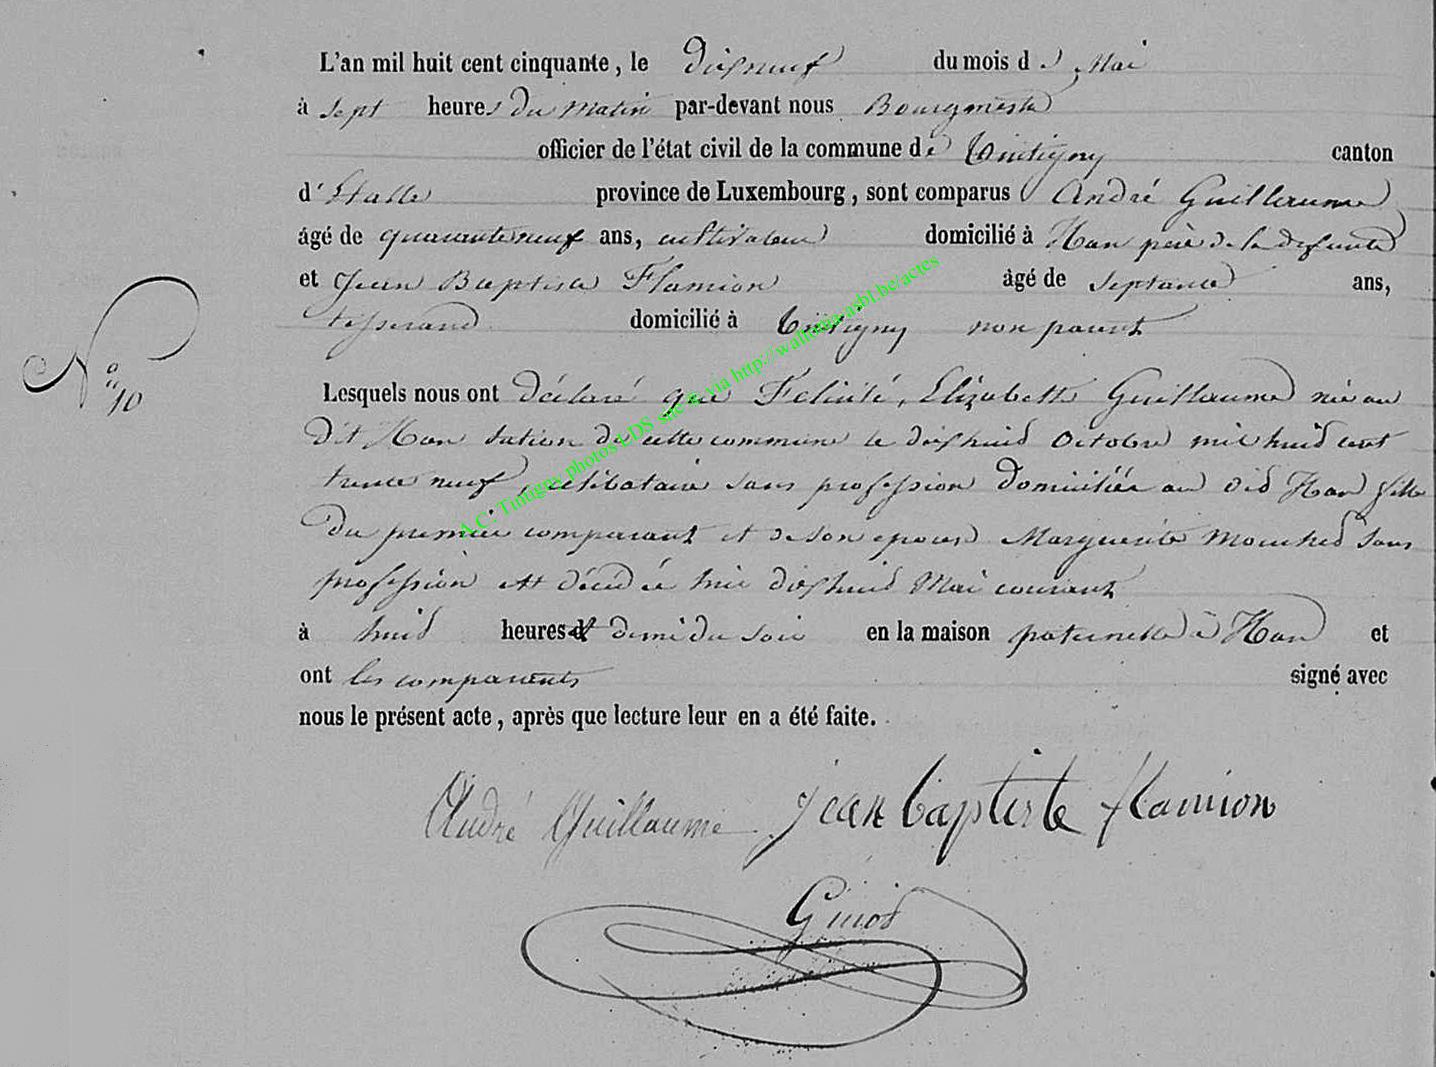 L'an mil huit cent cinquante, le dixneuf du mois de Mai
à sept heures du matin par-devant nous Bourgmestre
officier de l'état civil de la commune de Tintigny canton
d'Etalle province de Luxembourg, sont comparus André Guillaume
âgé de quaranteneuf ans, cultivateur domicilié à Han père de la defunte
et Jean Baptiste Flamion âgé de septante ans,
tisserand domicilié à Tintigny non parent
N° 10
Lesquels nous ont déclaré que Felicité, Elizabeth Guillaume née au
dit Han section de cette commune le dixhuid Octobre mil huid cent
trente neuf, celibataire sans profession domiciliée au did Han fille
du premier comparant et de son epouse Marguerite Mouched sans
profession est décédée hier dixhuid Mai courant
à huid heures et demi du soir en la maison paternelle à Han et
ont les comparants signé avec
nous le présent acte, après que lecture leur en a été faite.
André Guillaume jean baptiste flamion
A.C. Tintigny photos UDS sac & via http://wallonia-asbl.be/actes